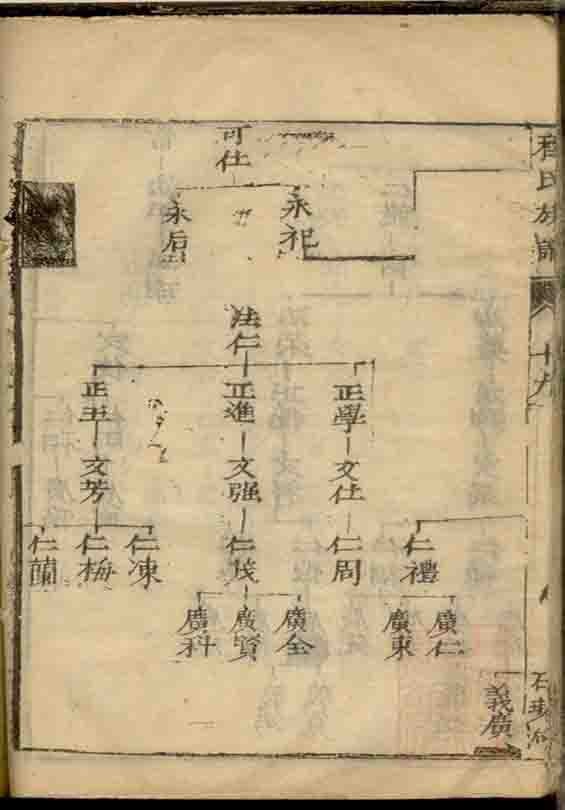 程氏族譜
十九
可仕
永祀
永后
法仁
正學
文仕
仁周
正進
文强
仁茂
文芳
仁凍
仁梅
仁蘭
仁禮
廣仁
廣東
廣全
廣賢
廣科
義廣